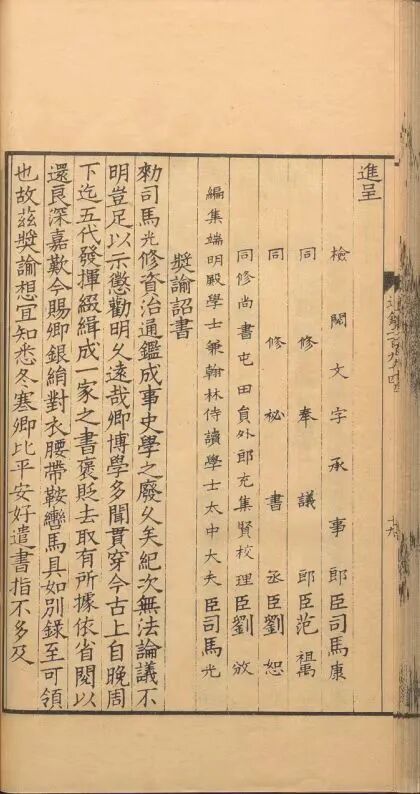 進呈
檢閱文字承事郎臣司馬康
同修奉議郎臣范祖禹
同修秘書丞臣劉恕
同修尚書屯田員外郎充集賢校理臣劉攽
編集端明殿學士兼翰林侍讀學士太中大夫臣司馬光
獎諭詔書
勑司馬光修資治通鑑成事史學之廢久矣紀次無法論議不
明豈足以示懲勸明久遠哉卿博學多聞貫穿今古上自晚周
下迄五代發揮綴緝成一家之書褒貶去取有所據依省閱以
還良深嘉歎今賜卿銀絹對衣腰帶鞍轡馬具如別錄至可領
也故茲獎諭想宜知悉冬寒卿比平安好遣書指不多及